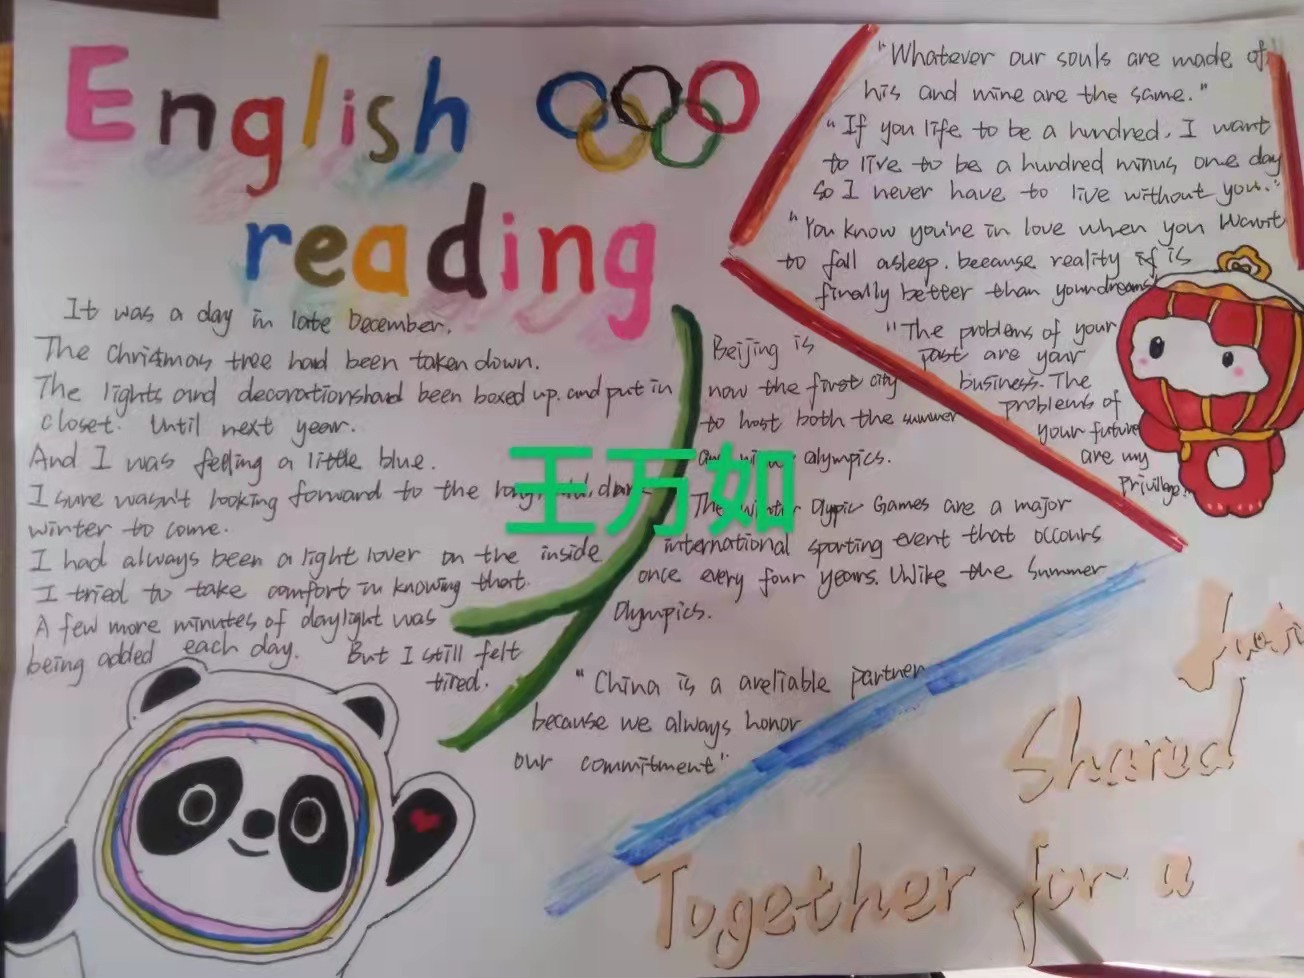 English
reading
"Whatever our souls are made of,
his and mine are the same."
"If you life to be a hundred, I want
to live to be a hundred minus one day
so I never have to live without you."
"You know you're in love when you want
to fall asleep. because reality if is
finally better than yourdreams"
"The problems of your
past are your
business. The
problems of
your future
are my
Privilege."
It was a day in late December.
The Christmas tree had been taken down.
The lights and decorationshad been boxed up. and put in
closet. Until next year.
And I was felling a little blue.
I sure wasn't looking forward to the
winter to come.
I had always been a light lover on the inside
I tried to take comfort in knowing that
A few more minutes of daylight was
being added each day. But I still felt
tired.
Beijing is
now the first city
to host both the summer
olympics.
王万如
The Winter Olypic Games are a major
international sporting event that occours
once every four years. Unlike the Summer
Olympics.
"China is a areliable partner
because we always honor
our commitment"
Together for a
Shared